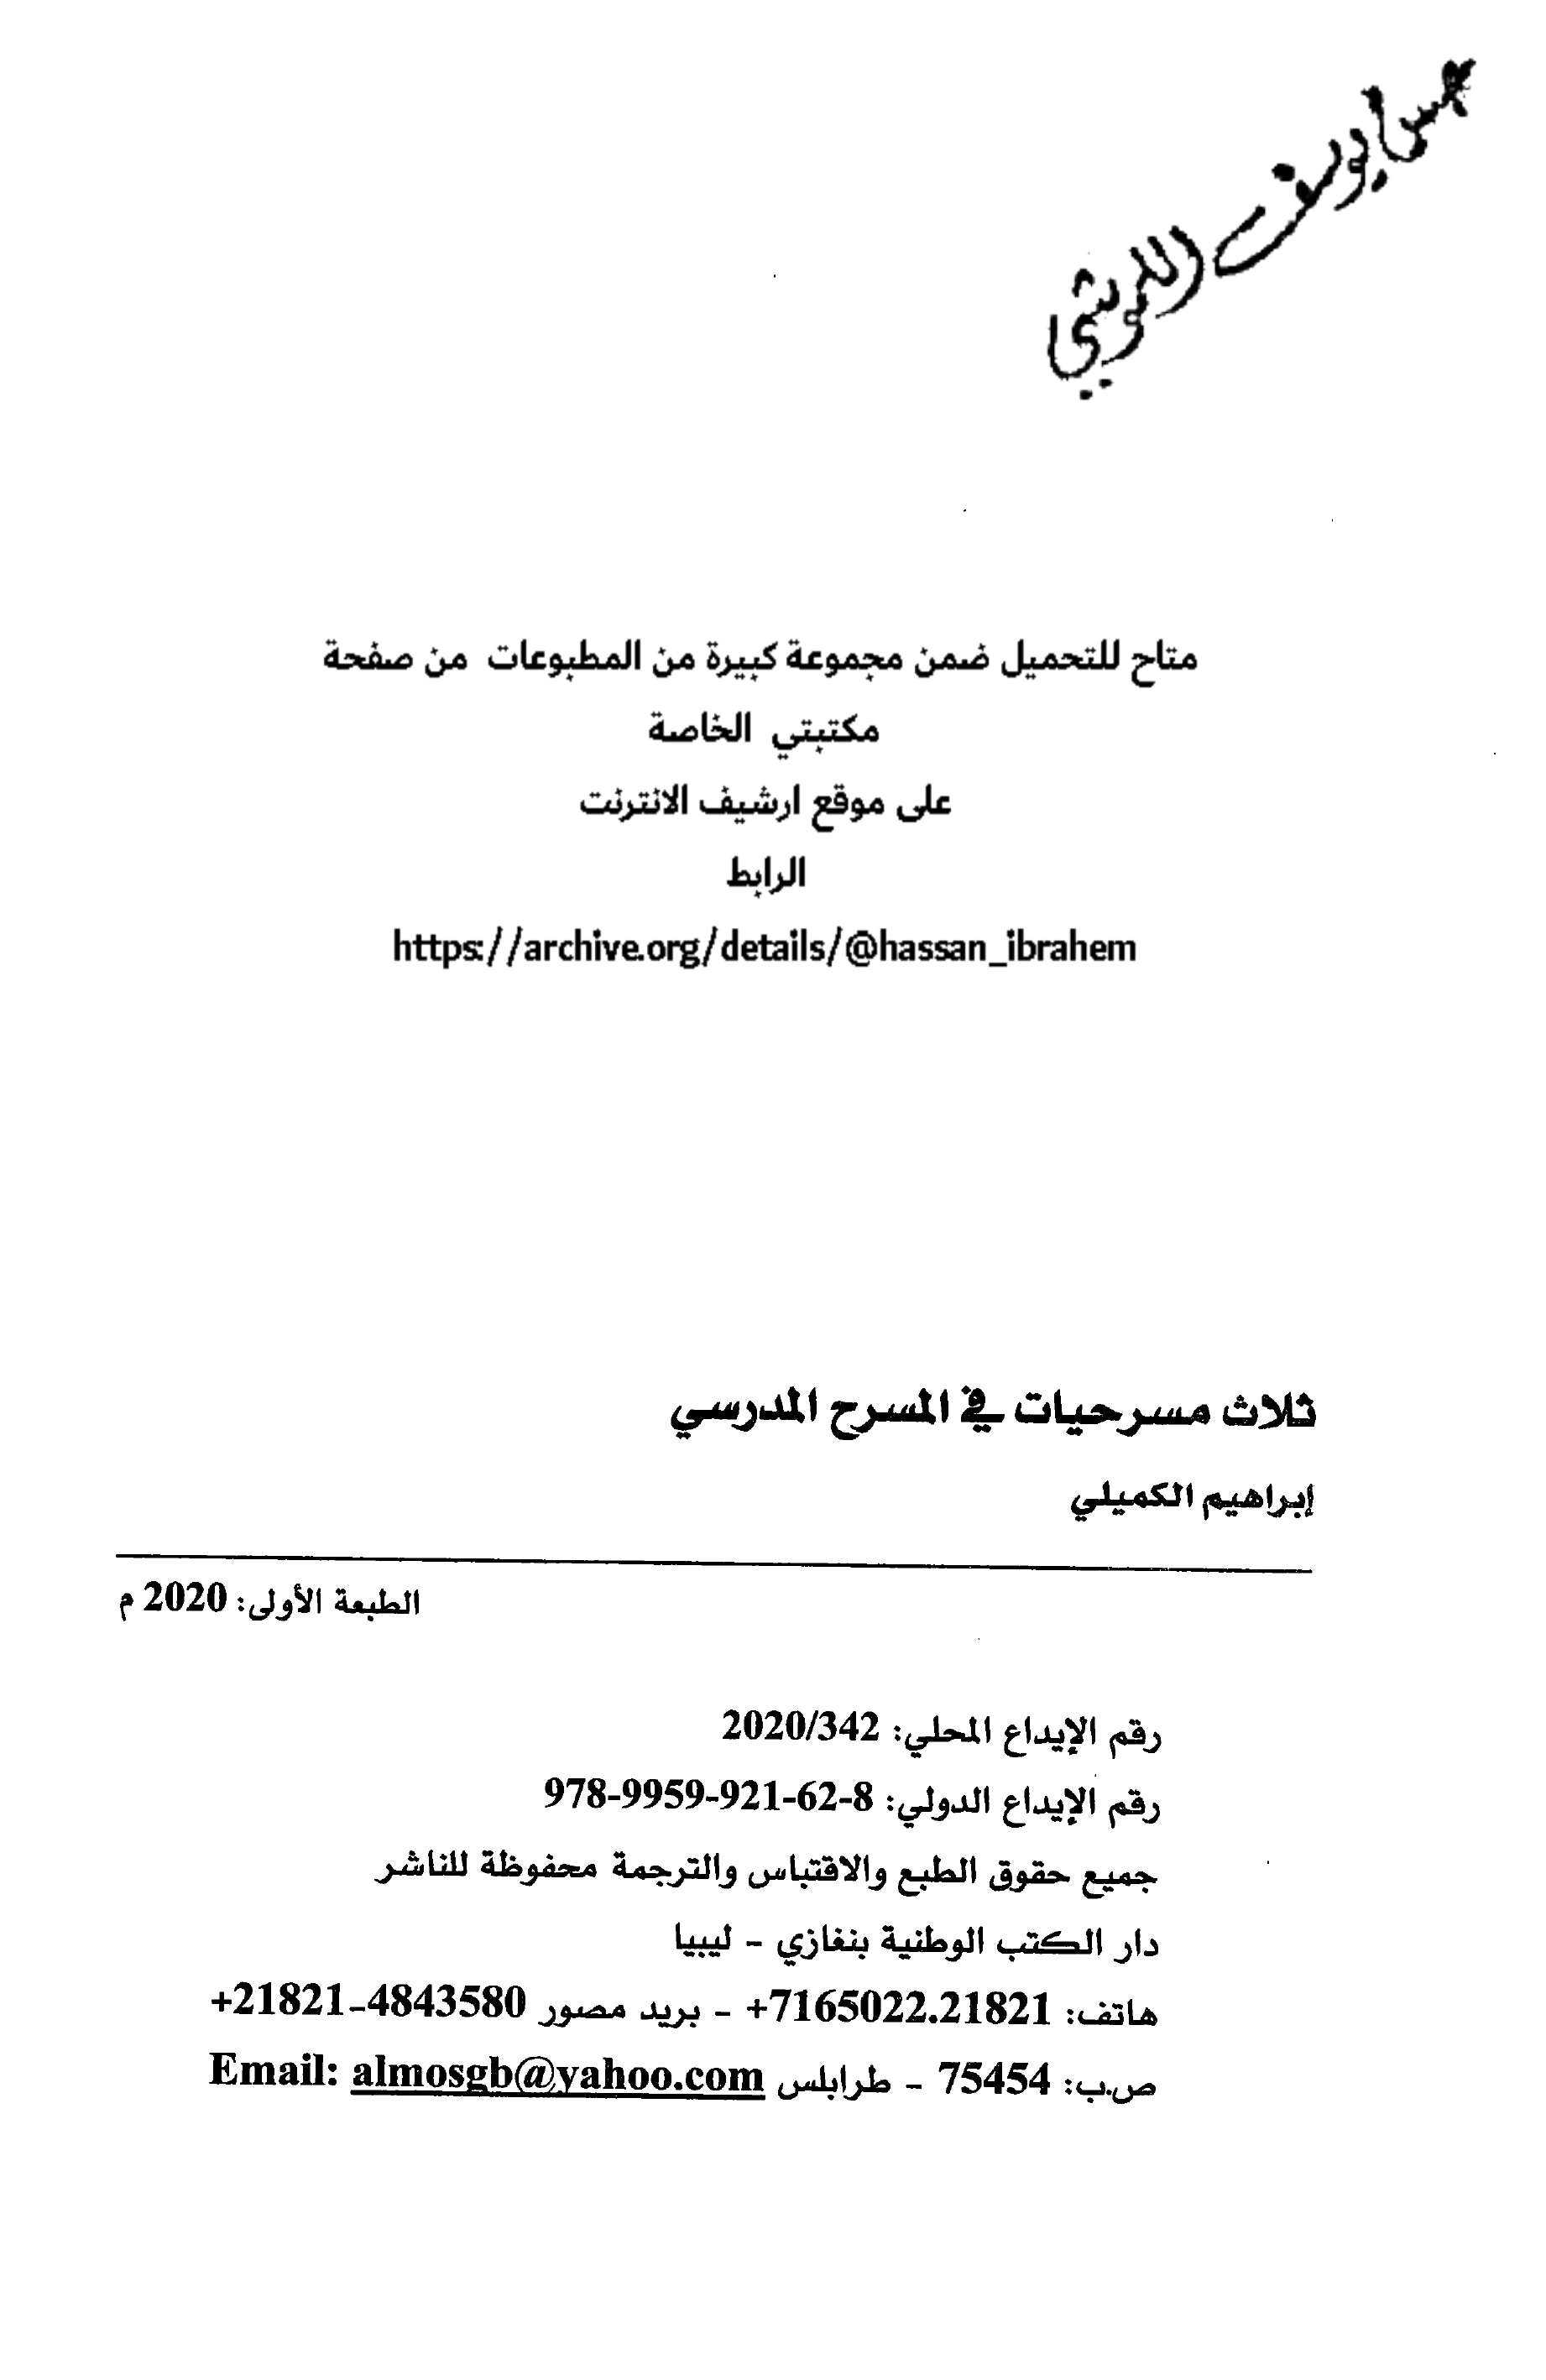 يوسف
متاح للتحميل ضمن مجموعة كبيرة من المطبوعات من صفحة
مكتبتي الخاصة
على موقع ارشيف الانترنت
الرابط
https://archive.org/details/@hassan_ibrahem
ثلاث مسرحيات في المسرح المدرسي
إبراهيم الكميلي
الطبعة الأولى: 2020 م
رقم الإيداع المحلي: 2020/342
رقم الإيداع الدولي: 978-9959-921-62-8
جميع حقوق الطبع والاقتباس والترجمة محفوظة للناشر
دار الكتب الوطنية بنغازي - ليبيا
هاتف: 7165022.21821+ - بريد مصور 4843580-21821+
ص.ب: 75454 - طرابلس Email: almosgb@yahoo.com